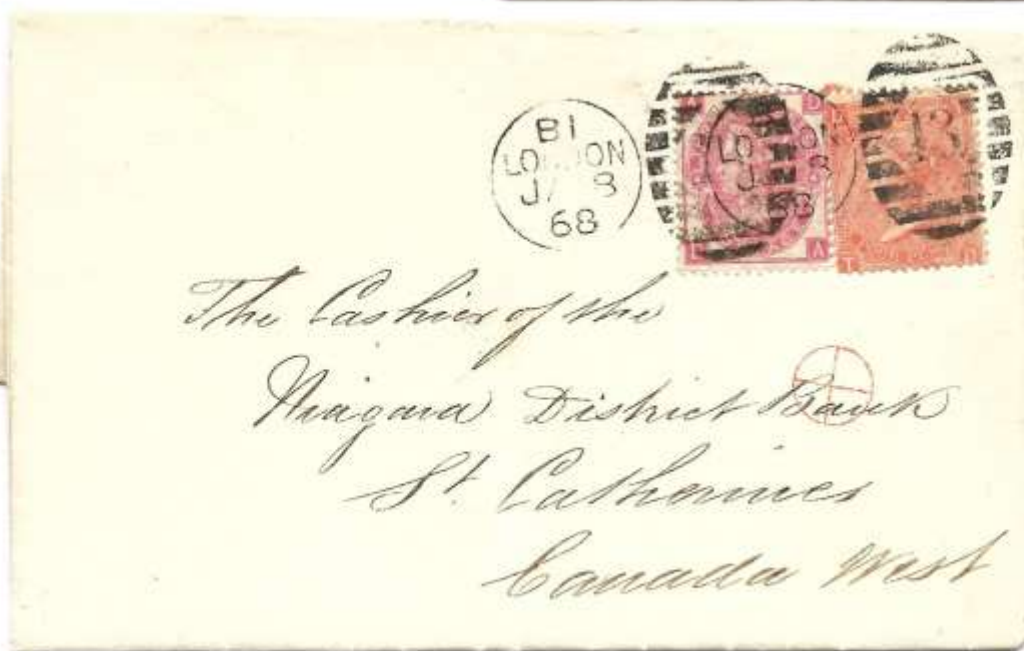 B1
LONDON
JA 8
68
LO ON
J 8
8
13
D
L A
T
The Cashier of the
Niagara District Bank
St. Catherines
Canada West